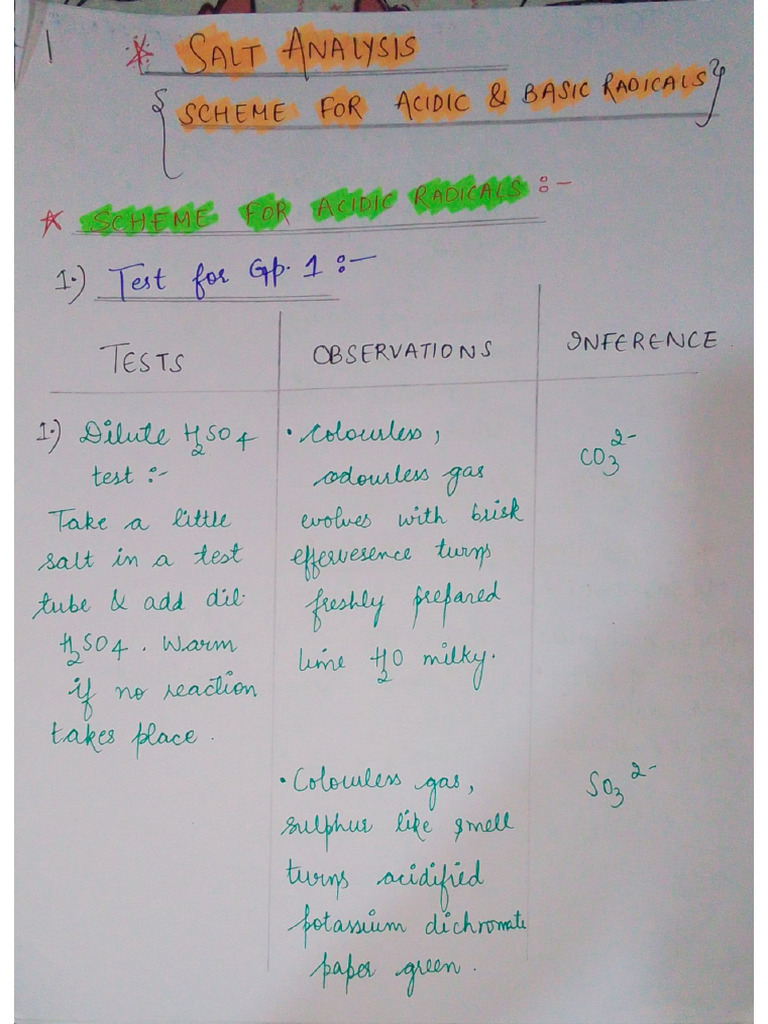 1
* SALT ANALYSIS
{SCHEME FOR ACIDIC & BASIC RADICALS}
* SCHEME FOR ACIDIC RADICALS :-
1.) Test for Gp. 1 :-
TESTS
OBSERVATIONS
INFERENCE
1.) Dilute H2SO4
test :-
Take a little
salt in a test
tube & add dil.
H2SO4. Warm
if no reaction
takes place.
• Colourless,
odourless gas
evolves with brisk
effervesence turns
freshly prepared
lime H2O milky.
CO3 2-
• Colourless gas,
sulphur like smell
turns acidified
potassium dichromate
paper green.
SO3 2-